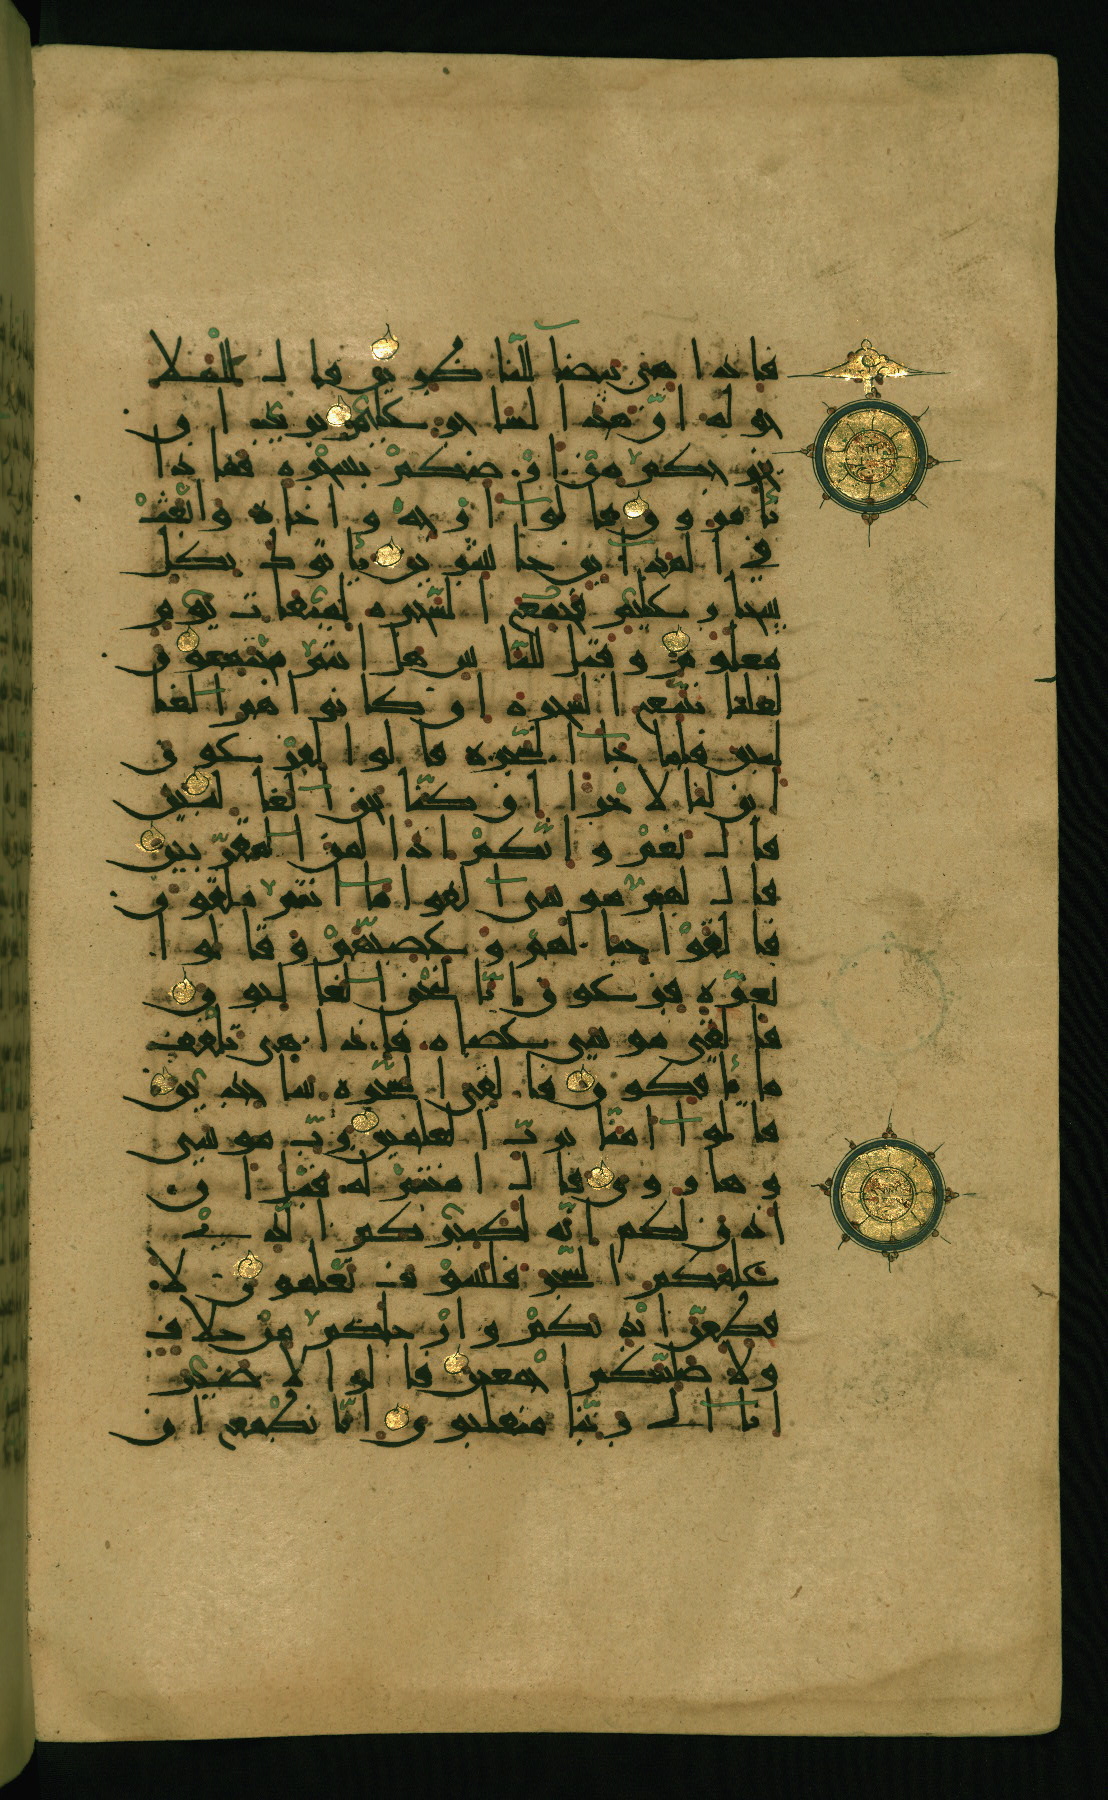 فاذا هي بيضآ للناظرين قال للملا
حوله ان هذا لساحر عليم يريد ان
يخرجكم من ارضكم بسحره فماذا
تامرون قالوا ارجه واخاه وابعث
في المدآين حاشرين ياتوك بكل
سحار عليم فجمع السحرة لميقات يوم
معلوم وقيل للناس هل انتم مجتمعون
لعلنا نتبع السحرة ان كانوا هم الغا
لبين فلما جآ السحرة قالوا لفرعون
اين لنا لاجرا ان كنا نحن الغالبين
قال نعم وانكم اذا لمن المقربين
قال لهم موسى القوا مآ انتم ملقون
فالقوا حبالهم وعصيهم وقالوا
بعزة فرعون انا لنحن الغالبون
فالقى موسى عصاه فاذا هي تلقف
ما يافكون فالقي السحرة ساجدين
قالوا امنا برب العالمين رب موسى
وهارون قال امنتم له قبل ان
اذن لكم انه لكبيركم الذي
علمكم السحر فلسوف تعلمون لا
قطعن ايديكم وارجلكم من خلاف
ولاصلبنكم اجمعين قالوا لا ضير
انا الى ربنا منقلبون انا نطمع ان